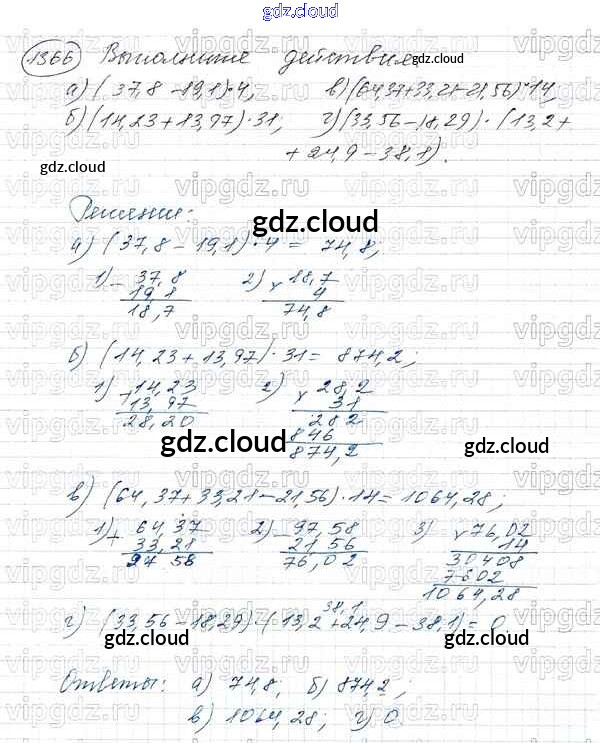 gdz.cloud
1366 Выполните действия
gdz.cloud
а) (37,8 - 19,1)·4; в) (64,37+33,21-21,56)·14,
б) (14,23+13,97)·31; г) (33,56-18,29)·(13,2+
+24,9-38,1).
gdz.cloud gdz.cloud
Решение:
gdz.cloud
а) (37,8 - 19,1)·4 = 74,8;
gdz.cloud
1) - 37,8 2) × 18,7
19,1 4
18,7 74,8
б) (14,23+13,97)·31 = 874,2;
1) + 14,23 2) × 28,2
13,97 31
28,20 282
846
874,2
gdz.cloud gdz.cloud
в) (64,37+33,21-21,56)·14 = 1064,28;
1) + 64,37 2) - 97,58 3) × 76,02
33,21 21,56 14
97,58 76,02 30408
7602
1064,28
38,1
г) (33,56-18,29)·(13,2+24,9-38,1) = 0
gdz.cloud gdz.cloud
Ответы: а) 74,8; б) 874,2;
в) 1064,28; г) 0
gdz.cloud
vipgdz.ru